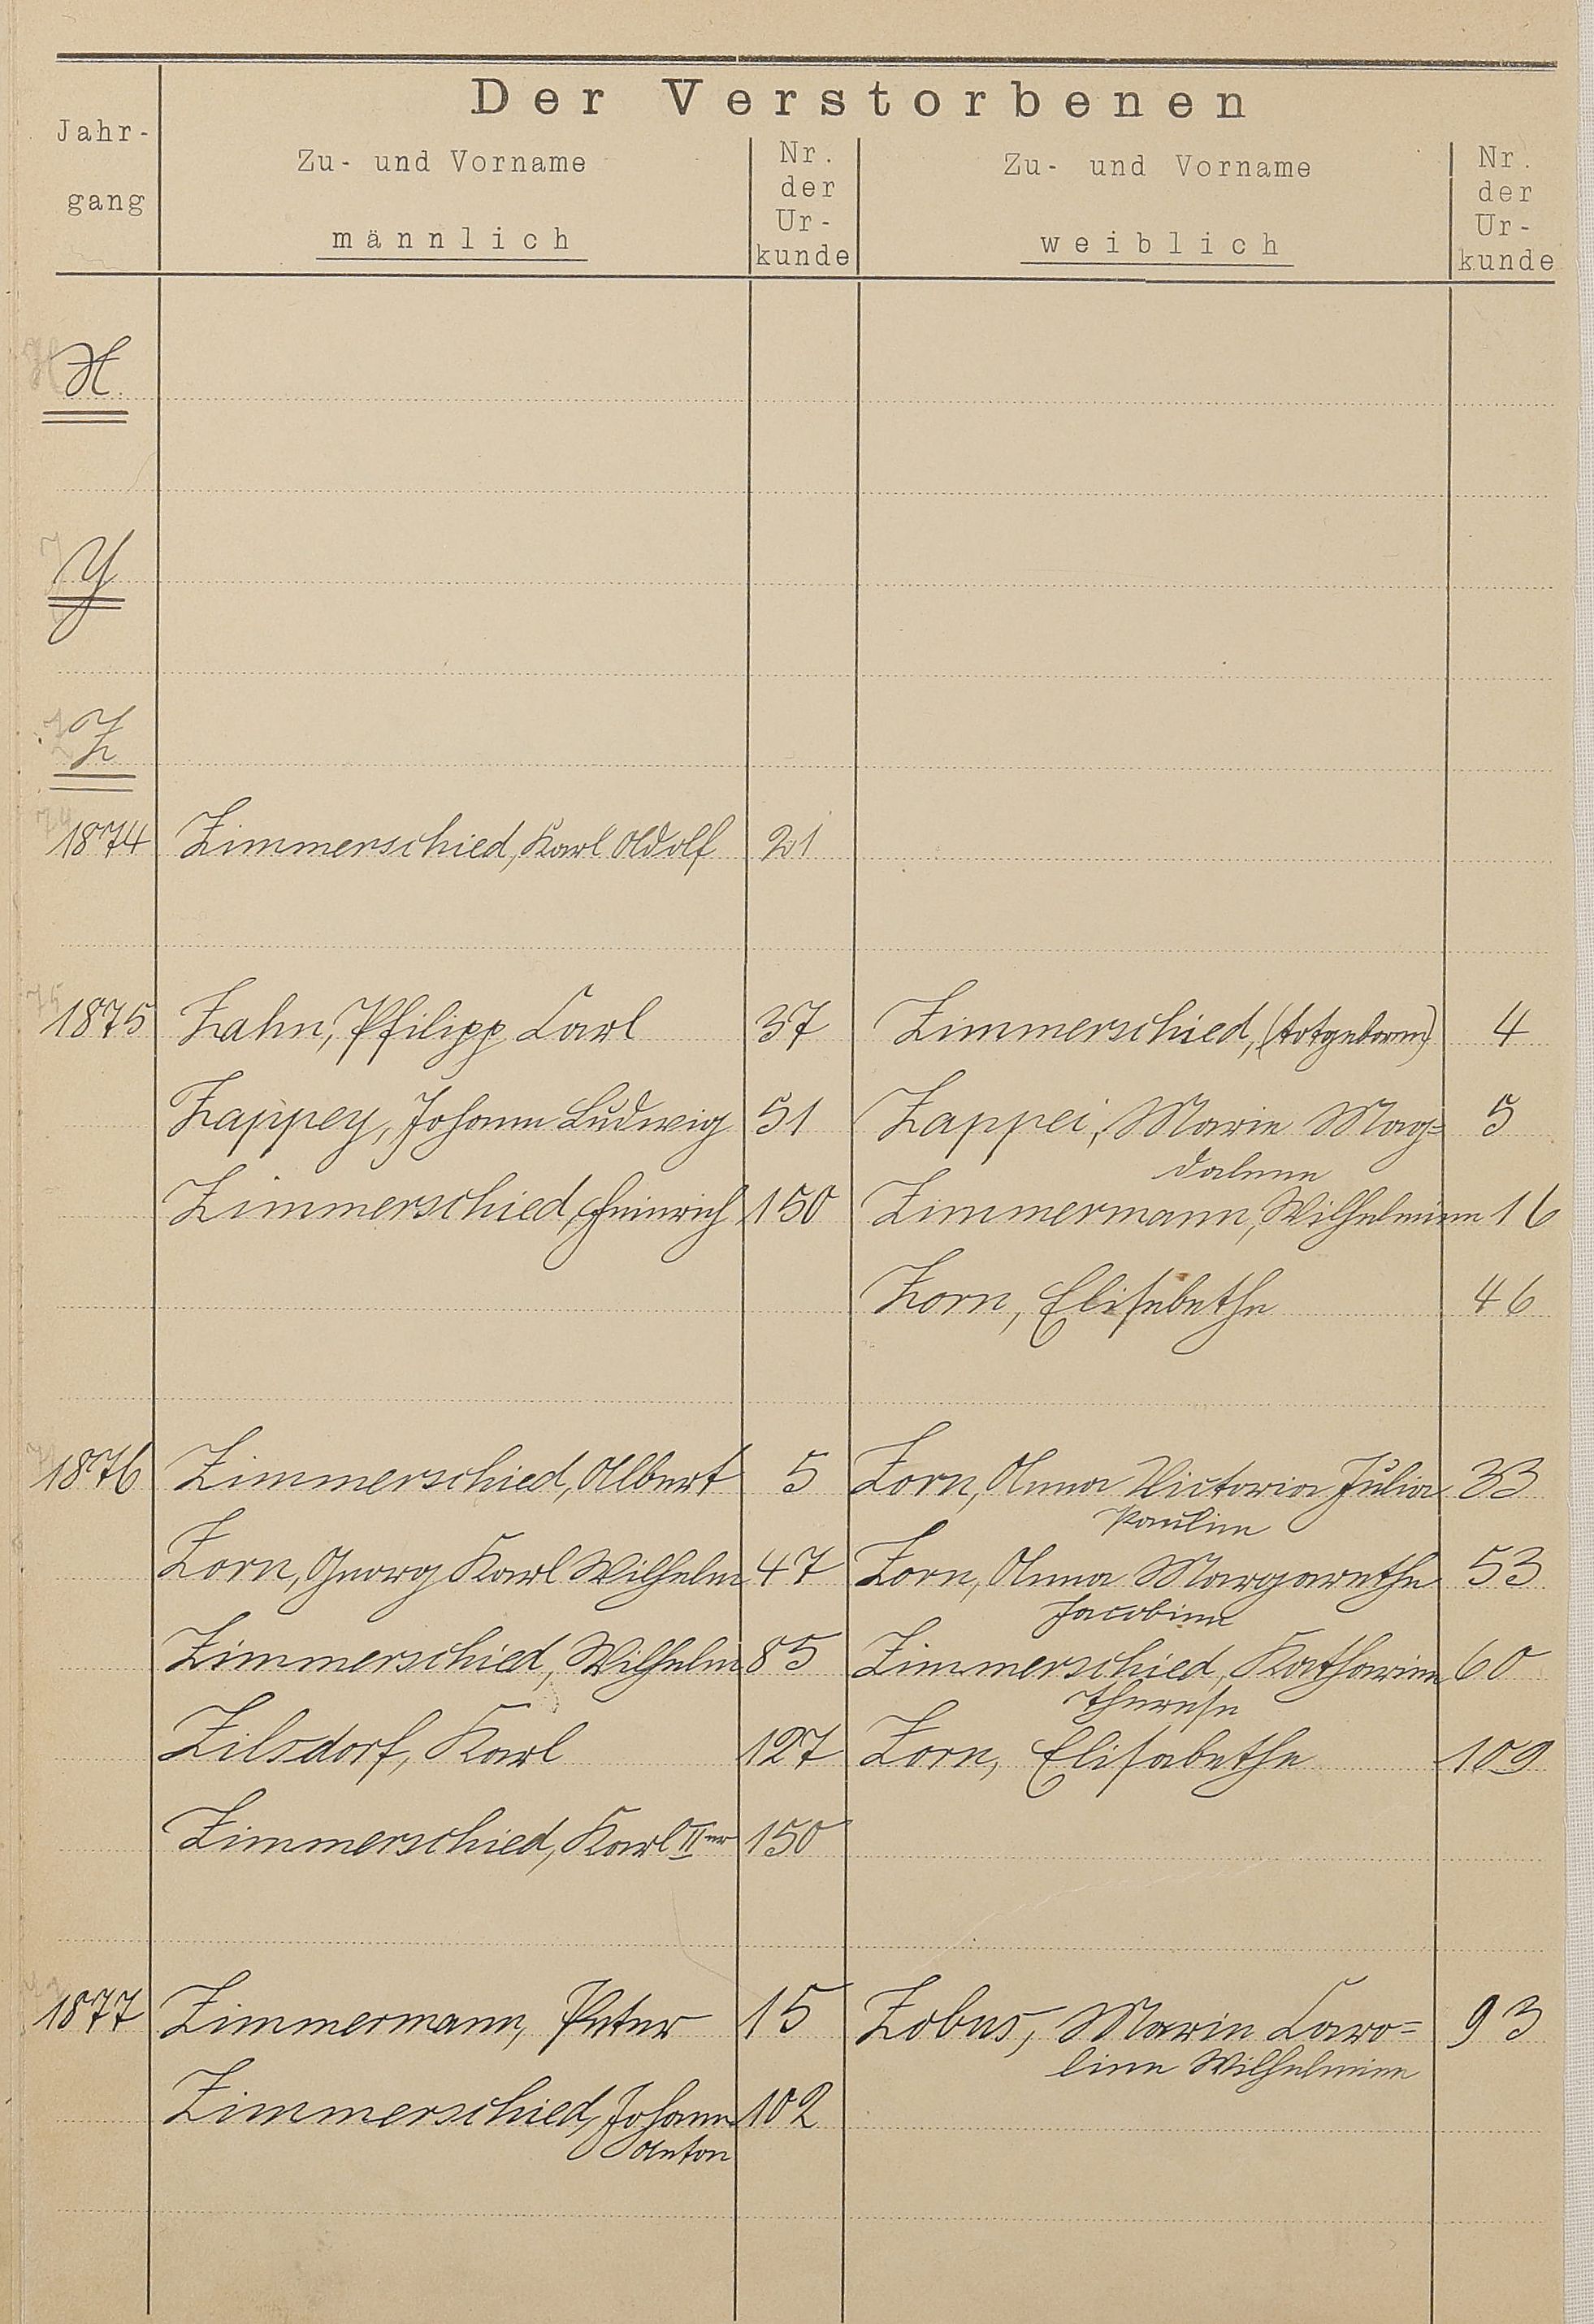 Der Verstorbenen
Jahr-
gang
Zu- und Vorname
männlich
Nr.
der
Ur-
kunde
Zu- und Vorname
weiblich
Nr.
der
Ur-
kunde
X.
Y
Z
1874 Zimmerschied, Karl Adolf 21
1875 Zahn, Philipp Carl 37 Zimmerschied, (totgeboren) 4
Zappey, Johann Ludwig 51 Zappei, Marie Mag=
dalene 5
Zimmerschied, Heinrich 150 Zimmermann, Wilhelmine 16
Zorn, Elisebethe 46
1876 Zimmerschied, Albert 5 Zorn, Anna Victoria Julia 33
Pauline
Zorn, Georg Karl Wilhelm 47 Zorn, Anna Margarethe 53
Jacobine
Zimmerschied, Wilhelm 85 Zimmerschied, Katharine 60
Therese
Zilsdorf, Karl 127 Zorn, Elisabethe 109
Zimmerschied, Karl IIer 150
1877 Zimmermann, Peter 15 Zobus, Marie Caro= 93
line Wilhelmine
Zimmerschied, Johann 102
Anton